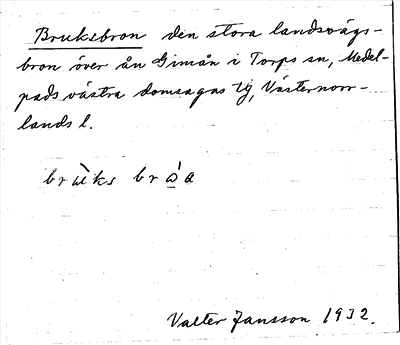 Bruksbron den stora landsvägs-
bron över ån Gimån i Torps sn, Medel-
pads västra domsagas tg, Västernorr-
lands l.
brùks brώ̲a
Valter Jansson 1932.